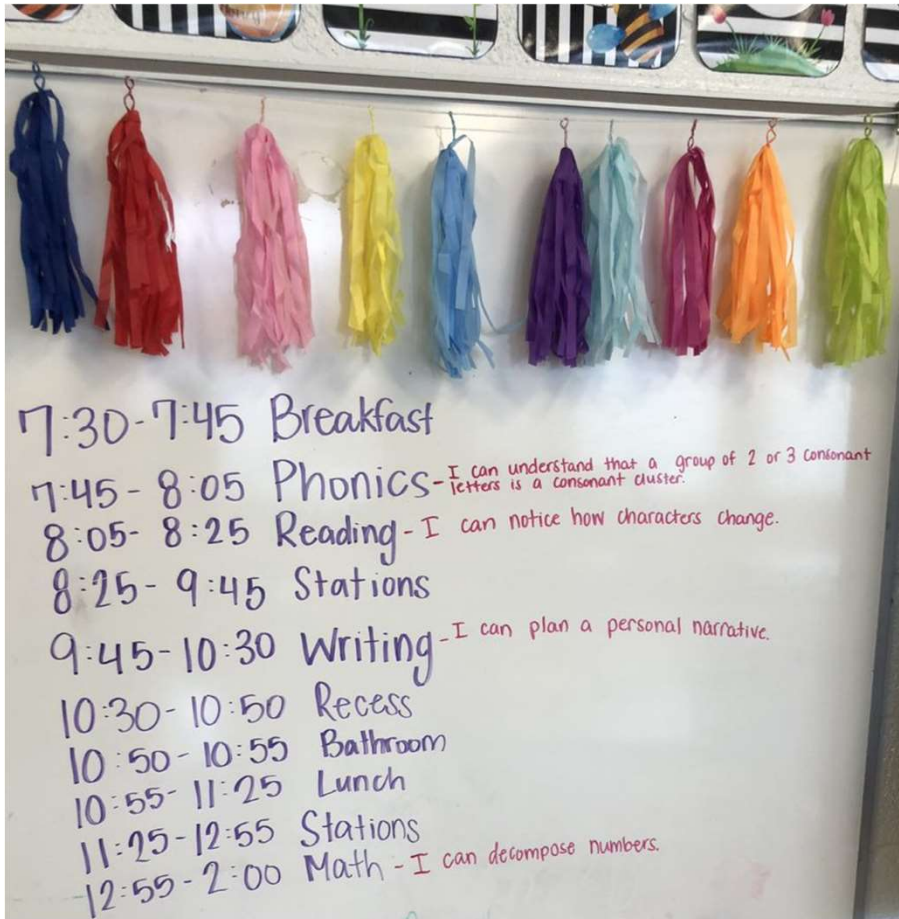 7:30-7:45 Breakfast
7:45-8:05 Phonics-I can understand that a group of 2 or 3 consonant
letters is a consonant cluster.
8:05-8:25 Reading-I can notice how characters change.
8:25-9:45 Stations
9:45-10:30 Writing-I can plan a personal narrative.
10:30-10:50 Recess
10:50-10:55 Bathroom
10:55-11:25 Lunch
11:25-12:55 Stations
12:55-2:00 Math-I can decompose numbers.